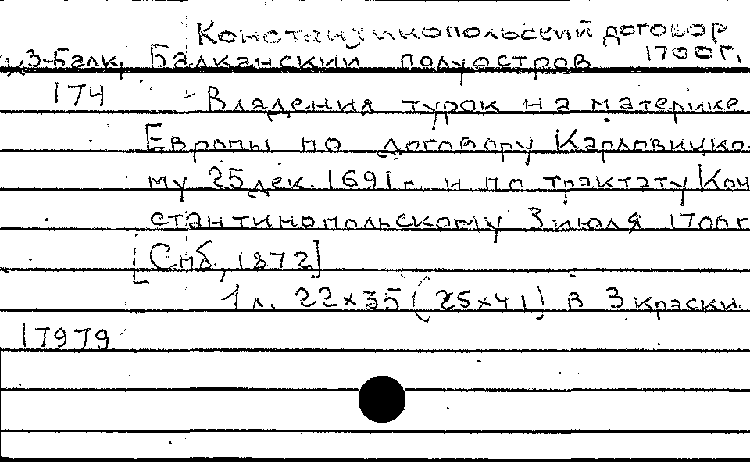 Константинопольский договор
З-Балк, Балканский полуостров 1700 г.
174 Владения турок на материке
Европы по договору Карловицко-
му 25 дек. 1691 г. и по трактату Кон
стантинопольскому 3 июля 1700 г
[Спб, 1872]
1 л. 22×35 (25×41) в 3 краски
17979